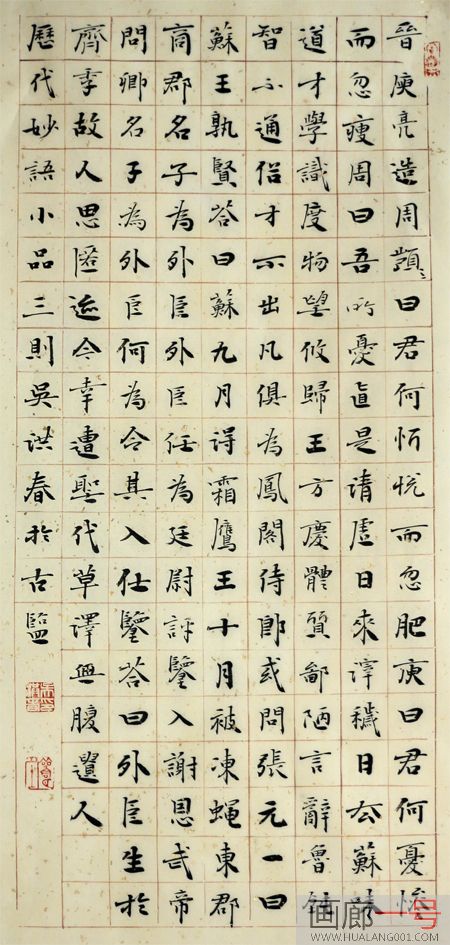 晉庾亮造周顗〻曰君何忻悅而忽肥庾曰君何憂慘
而忽瘦周曰吾所憂直是清虛日來滓穢日去蘇味
道才學識度物望攸歸王方慶體質鄙陋言辭魯鈍
智不通俗才不出凡俱為鳳閣侍郎或問張元一曰
蘇王孰賢荅曰蘇九月得霜鷹王十月被凍蠅東郡
商郡名子為外臣外臣任為廷尉評鑒入謝恩武帝
問卿名子為外臣何為令其入仕鑒荅曰外臣生於
齊季故人思匿迹今幸遭聖代草澤無腹遺人
歷代妙語小品三則吳洪春於古監
画廊一号
WWW.HUALANG001.COM